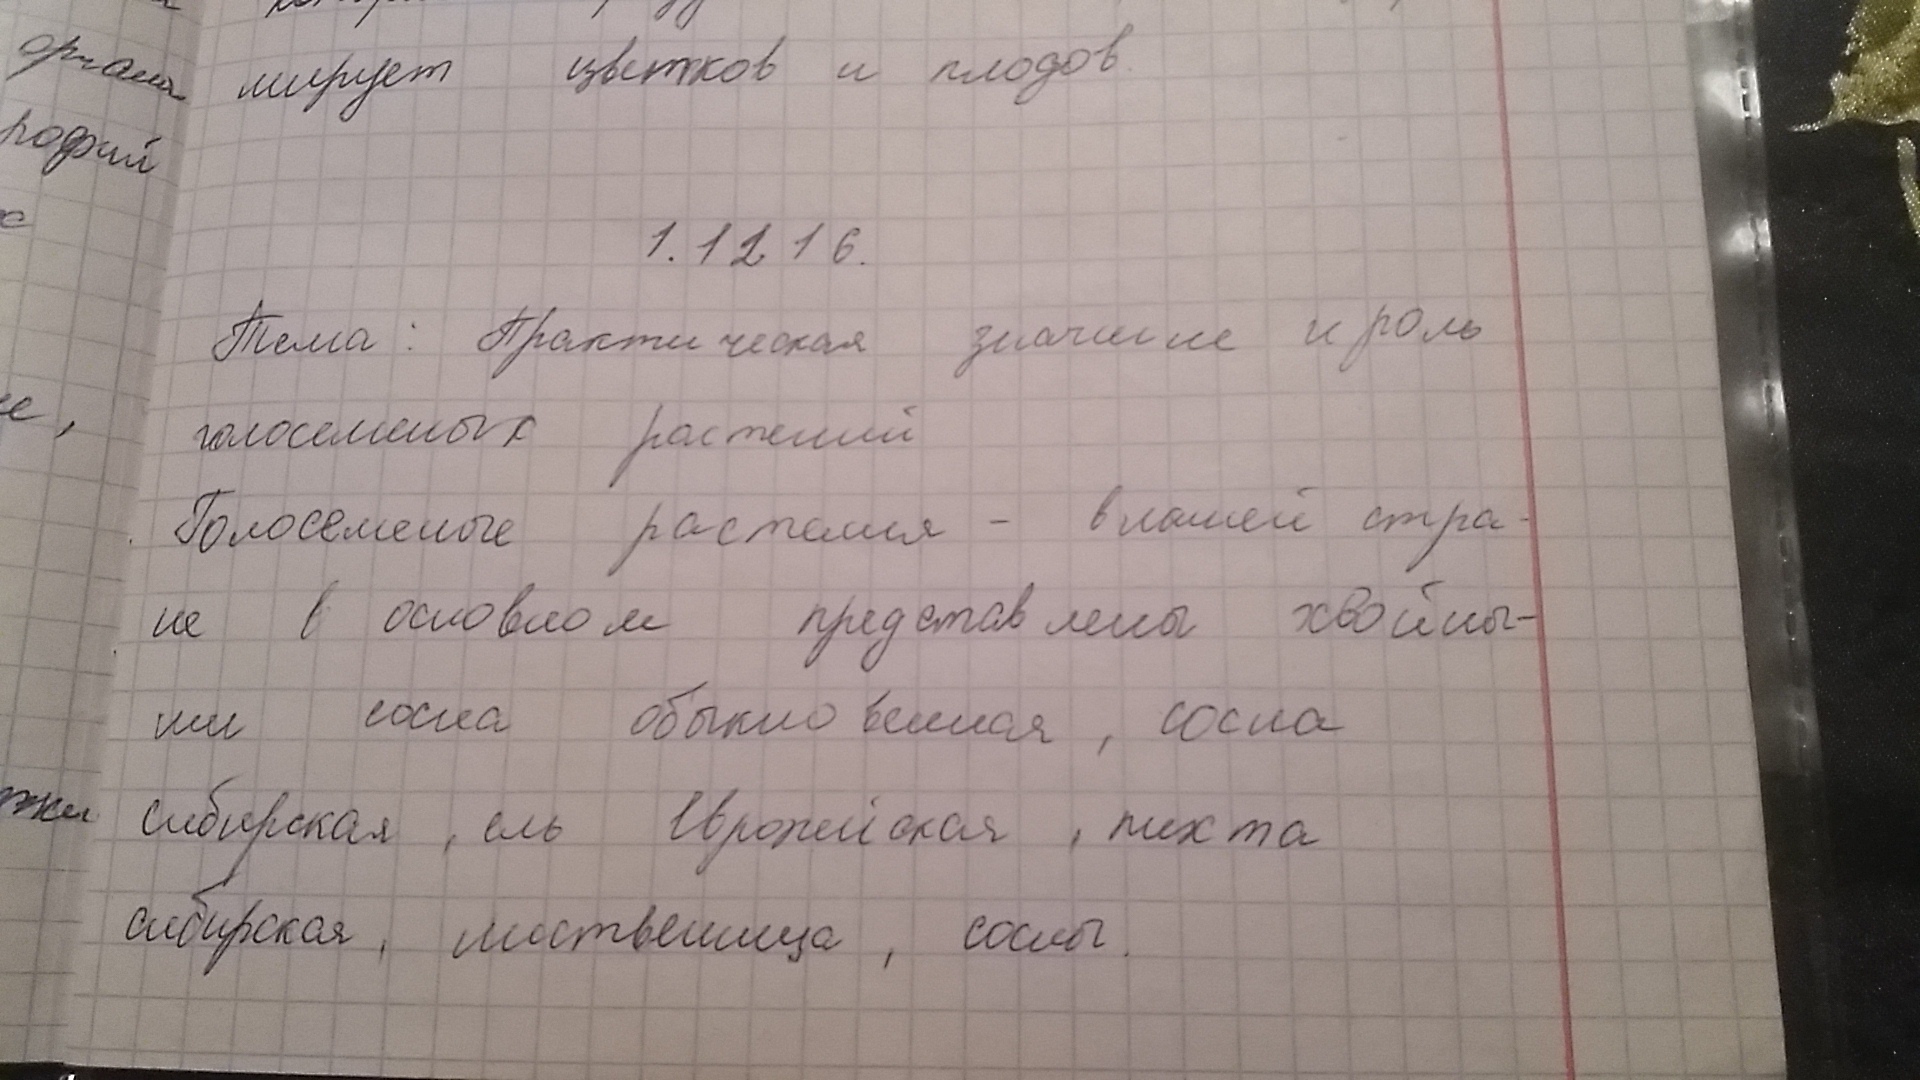 органа мирует цветков и плодов.
рофий
1.12 16.
Тема: Практическая значение и роль
голосеменых растений
Голосеменые растения - в нашей стра-
не в основном представлены хвойны-
ми сосна обыкновенная, сосна
сибирская, ель Европейская, пихта
сибирская, листвениица, сосны.